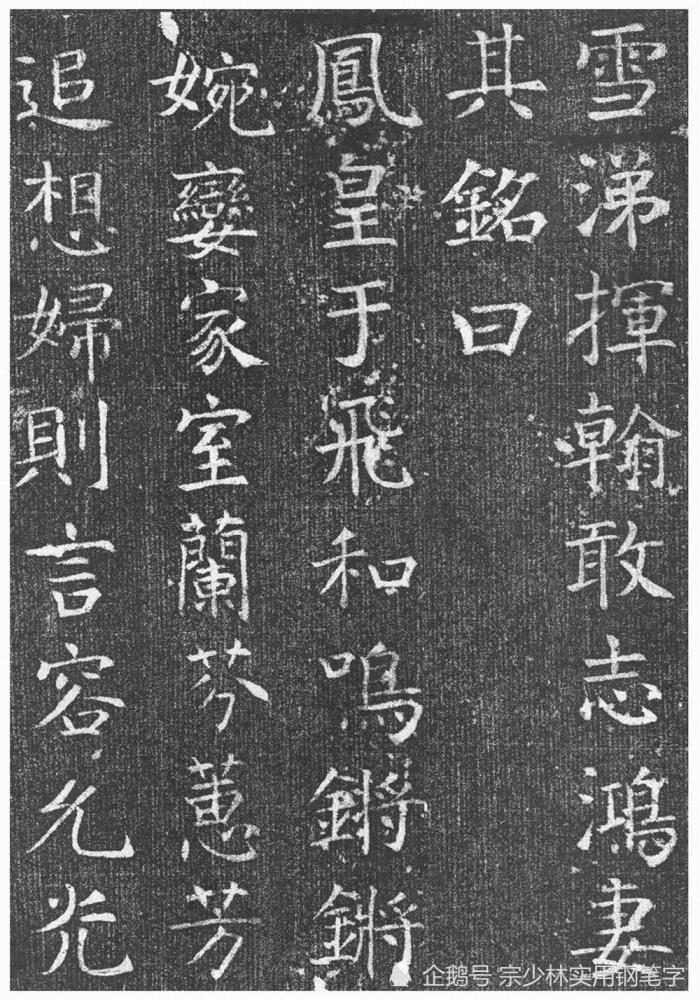 雪涕揮翰敢志鴻妻
其銘曰
鳳皇于飛和鳴鏘鏘
婉孌家室蘭芬蕙芳
追想婦則言容允光
企鹅号 宗少林实用钢笔字